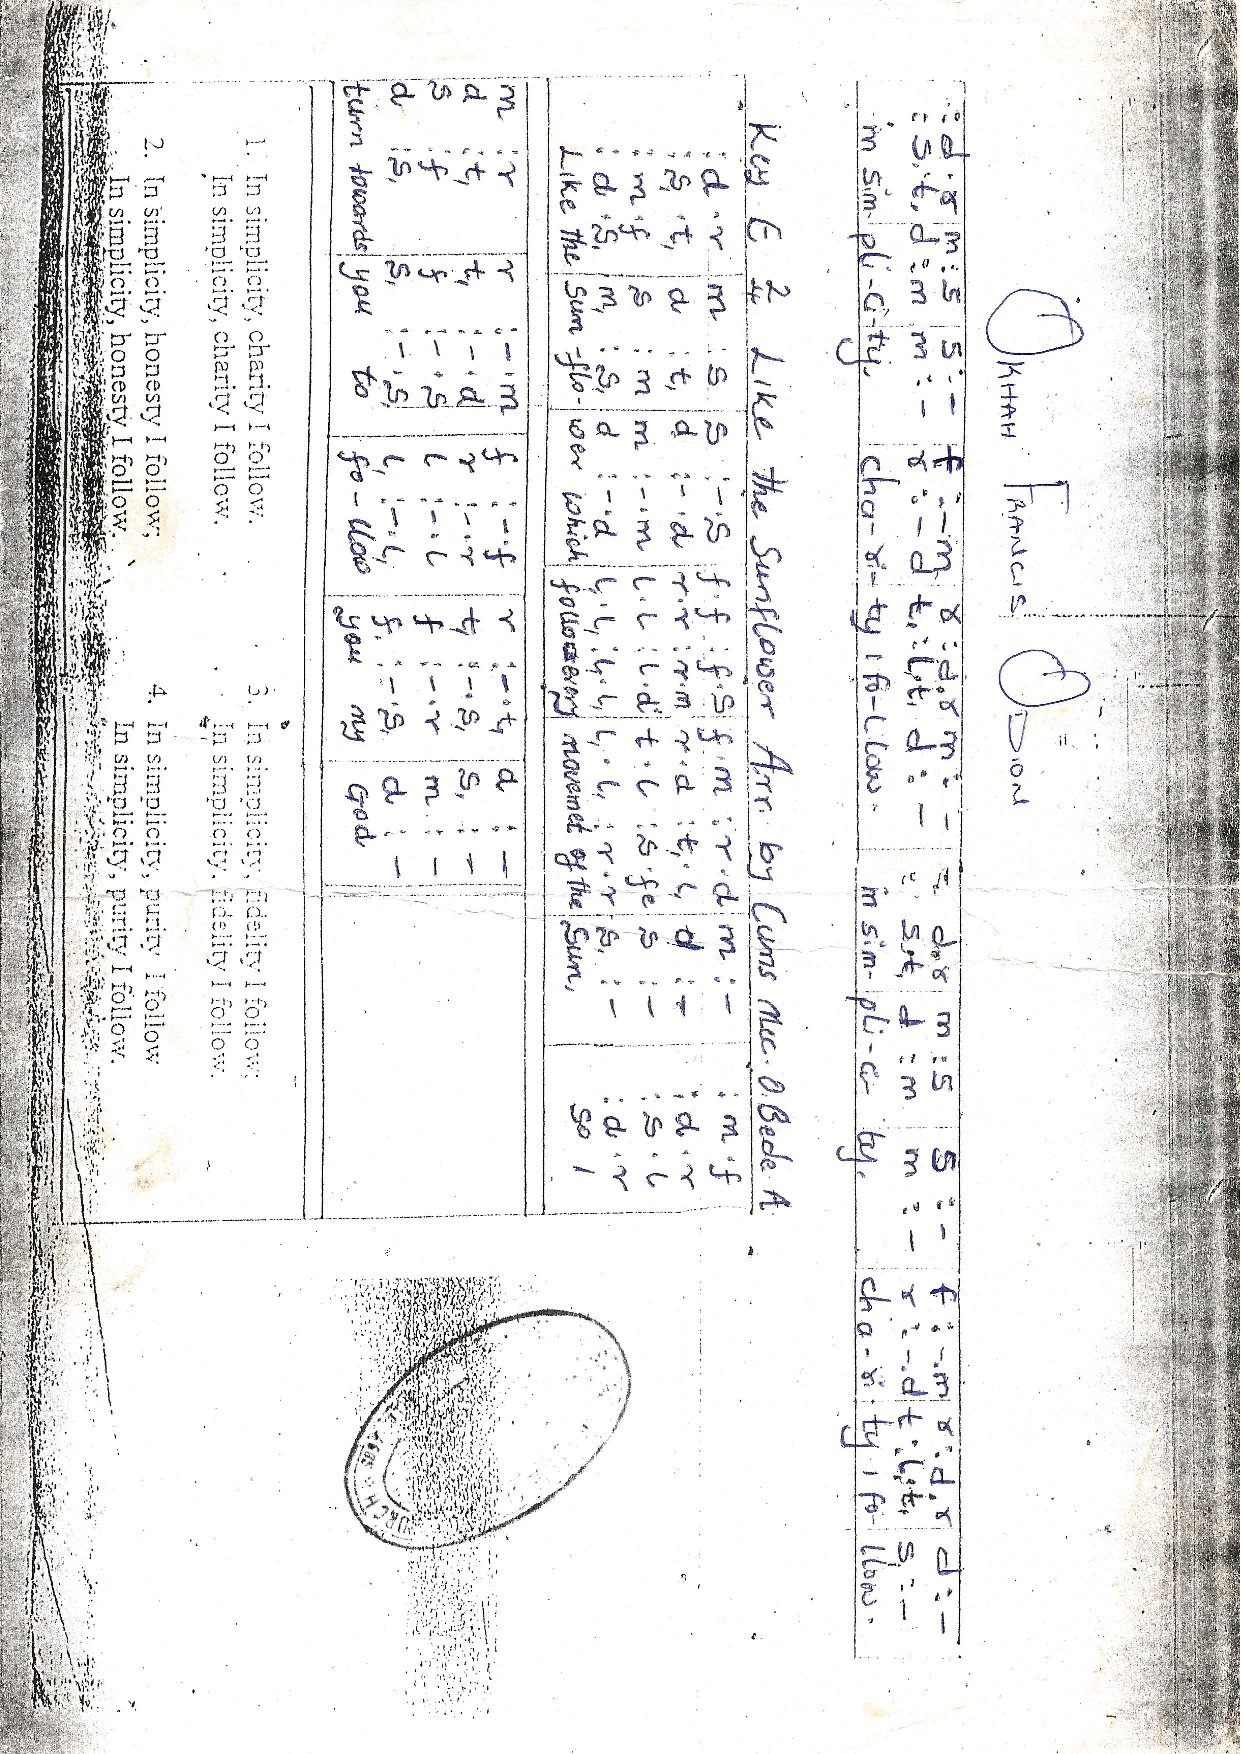 OKHAH FRANCIS ODION
: d . r m : s s : – f : – . m r : d . r m : – : d . r m : s s : – f : – . m r : d . r d : –
: s, . t, d : m m : – r : – . d t, : l, . t, d : – : s, . t, d : m m : – r : – . d t, : l, . t, s, : –
in sim-pli-ci-ty, cha-ri-ty I fo-llow. in sim-pli-ci-ty, cha-ri-ty I fo llow.
Key E 2/4 Like the Sunflower Arr. by Cums Muc. O. Bede. A
: d . r m : s s : – . s f . f : f . s f . m : r . d m : – : m . f
: s, . t, d : t, d : – . d r . r : r . m r . d : t, . l, d : – : d . r
: m . f s : m m : – . m l . l : l . d' t . l : s . fe s : – : s . l
: d . s, m, : s, d : – . d l, . l, : l, . l, l, . l, : r . r s, : – : d . r
Like the Sun-flo-wer which follows every movemet of the Sun, So I
m : r r : – . m f : – . f r : – . t, d : –
d : t, t, : – . d r : – . r t, : – . s, s, : –
s : f f : – . s l : – . l f : – . r m : –
d : s, s, : – . s, l, : – . l, f, : – . s, d : –
turn towards you to fo-llow you my God
1. In simplicity, charity I follow.
In simplicity, charity I follow.
2. In simplicity, honesty I follow;
In simplicity, honesty I follow.
3. In simplicity, fidelity I follow;
In simplicity, fidelity I follow.
4. In simplicity, purity I follow
In simplicity, purity I follow.